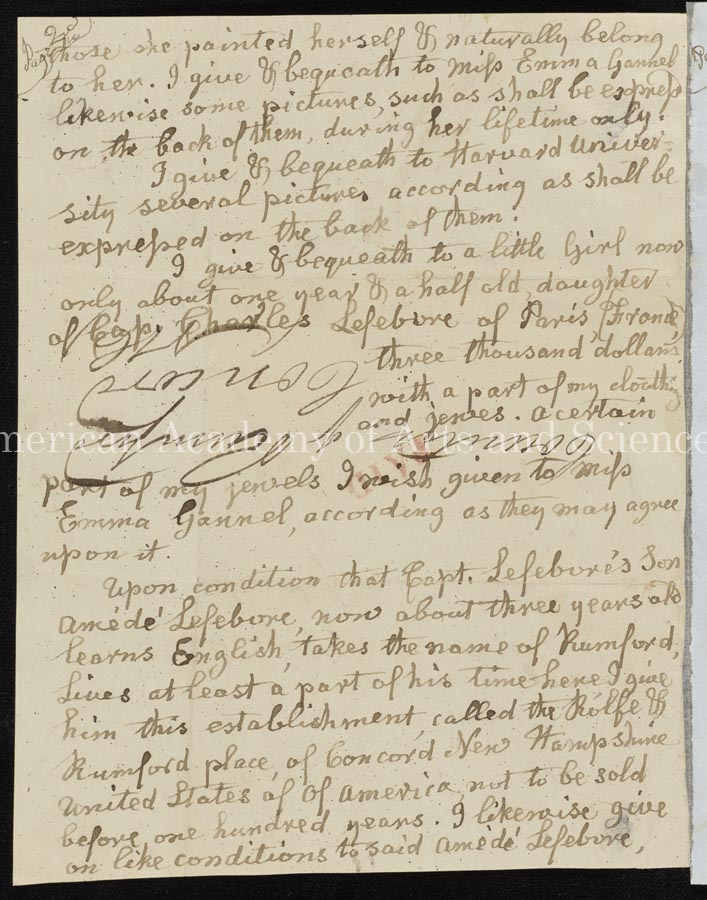 Page 2d
those she painted herself & naturally belong
to her. I give & bequeath to Miss Emma Gannel
likewise some pictures, such as shall be express
on the back of them, during her lifetime only.
I give & bequeath to Harvard Univer-
sity several pictures according as shall be
expressed on the back of them.
I give & bequeath to a little Girl now
only about one year & a half old, daughter
of Cap. Charles Lefebvre of Paris, France,
three thousand dollars
with a part of my cloothing
and jewes. a certain
American Academy of Arts and Science
part of my jewels I wish given to Miss
Emma Gannel, according as they may agree
upon it.
Upon condition that Capt. Lefebvre's Son
Amédé Lefebvre, now about three years old
learns English, takes the name of Rumford,
Lives at least a part of his time here I give
him this establishment called the Rolfe &
Rumford place, of Concord New Hampshire
United States of of America not to be sold
before one hundred years. I likewise give
on like conditions to said Amédé Lefebvre,